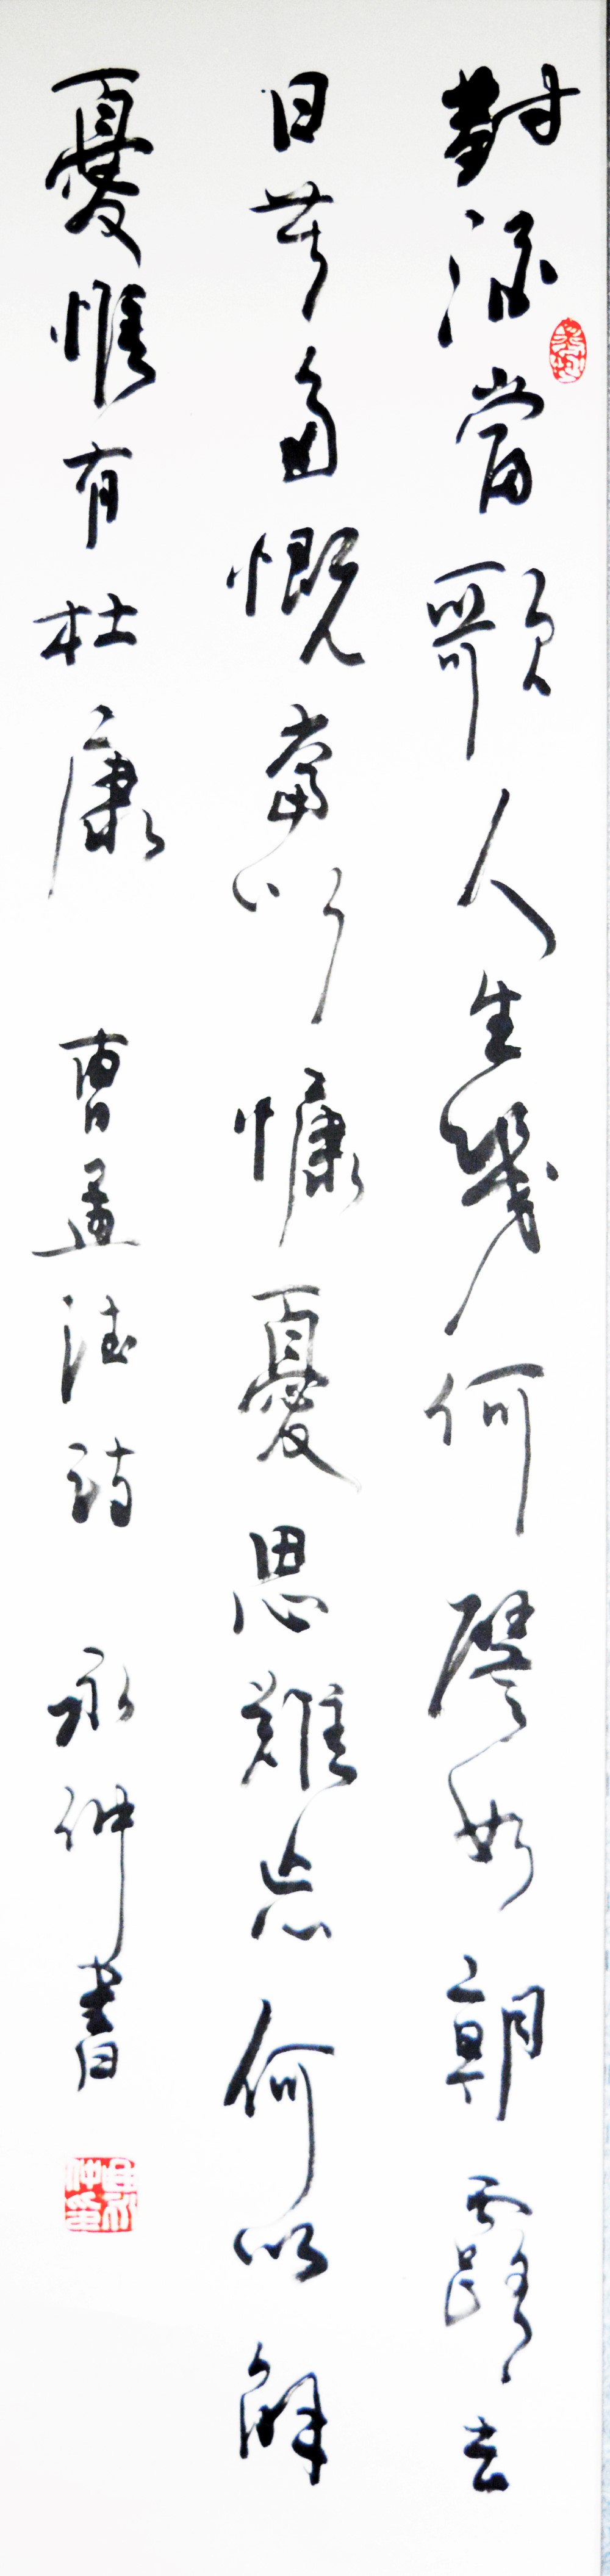 對酒當歌人生幾何譬如朝露去
日苦多慨當以慷憂思難忘何以解
憂惟有杜康 曹孟德詩 永仲書